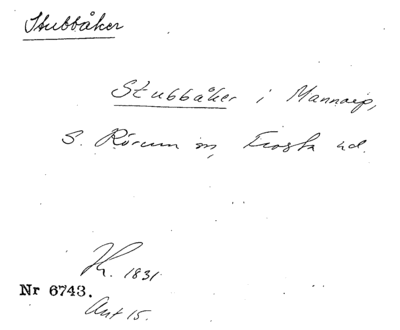 Stubbåker
Stubbåker i Mannarp,
S. Rörum sn, Frosta hd.
Kr. 1831.
Nr 6743.
Ant 15.